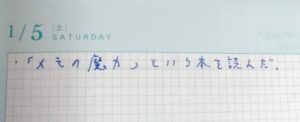 1/5 (土)
SATURDAY
・「メモの魔力」という本を読んだ。